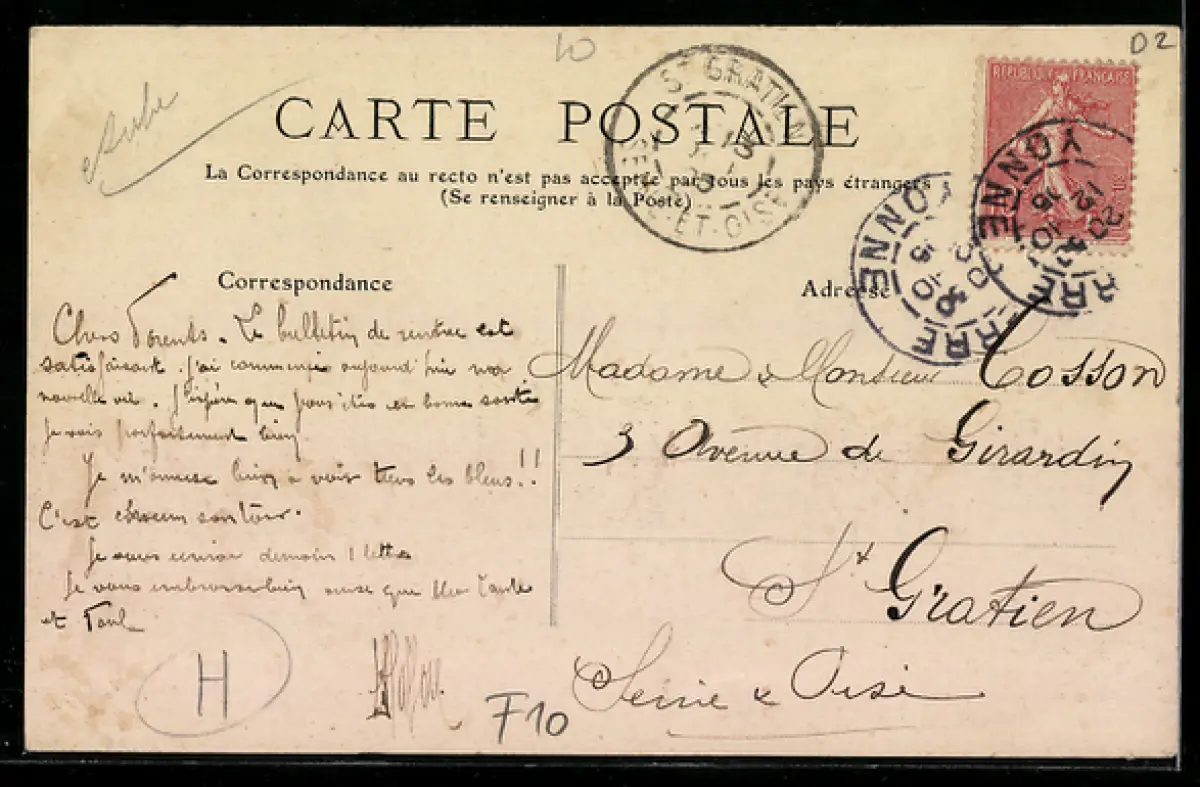 02
10
CARTE POSTALE
La Correspondance au recto n'est pas acceptée par tous les pays étrangers
(Se renseigner à la Poste)
ST GRATIEN
SEINE-ET-OISE
REPUBLIQUE FRANÇAISE
YONNE
YONNE
Correspondance
Adresse
Chers Parents. Le bulletin de rentrée est
satisfaisant. J'ai commencé aujourd'hui ma
nouvelle vie. J'espère que vous êtes en bonne santé
Je vais parfaitement bien.
Je m'amuse bien à voir tous les bleus!!
C'est chacun son tour.
Je vous écrirai demain 1 lettre
Je vous embrasse bien ainsi que Tante
et Paul
Madame & Monsieur Cosson
3 Avenue de Girardin
St Gratien
Seine & Oise
H
F10